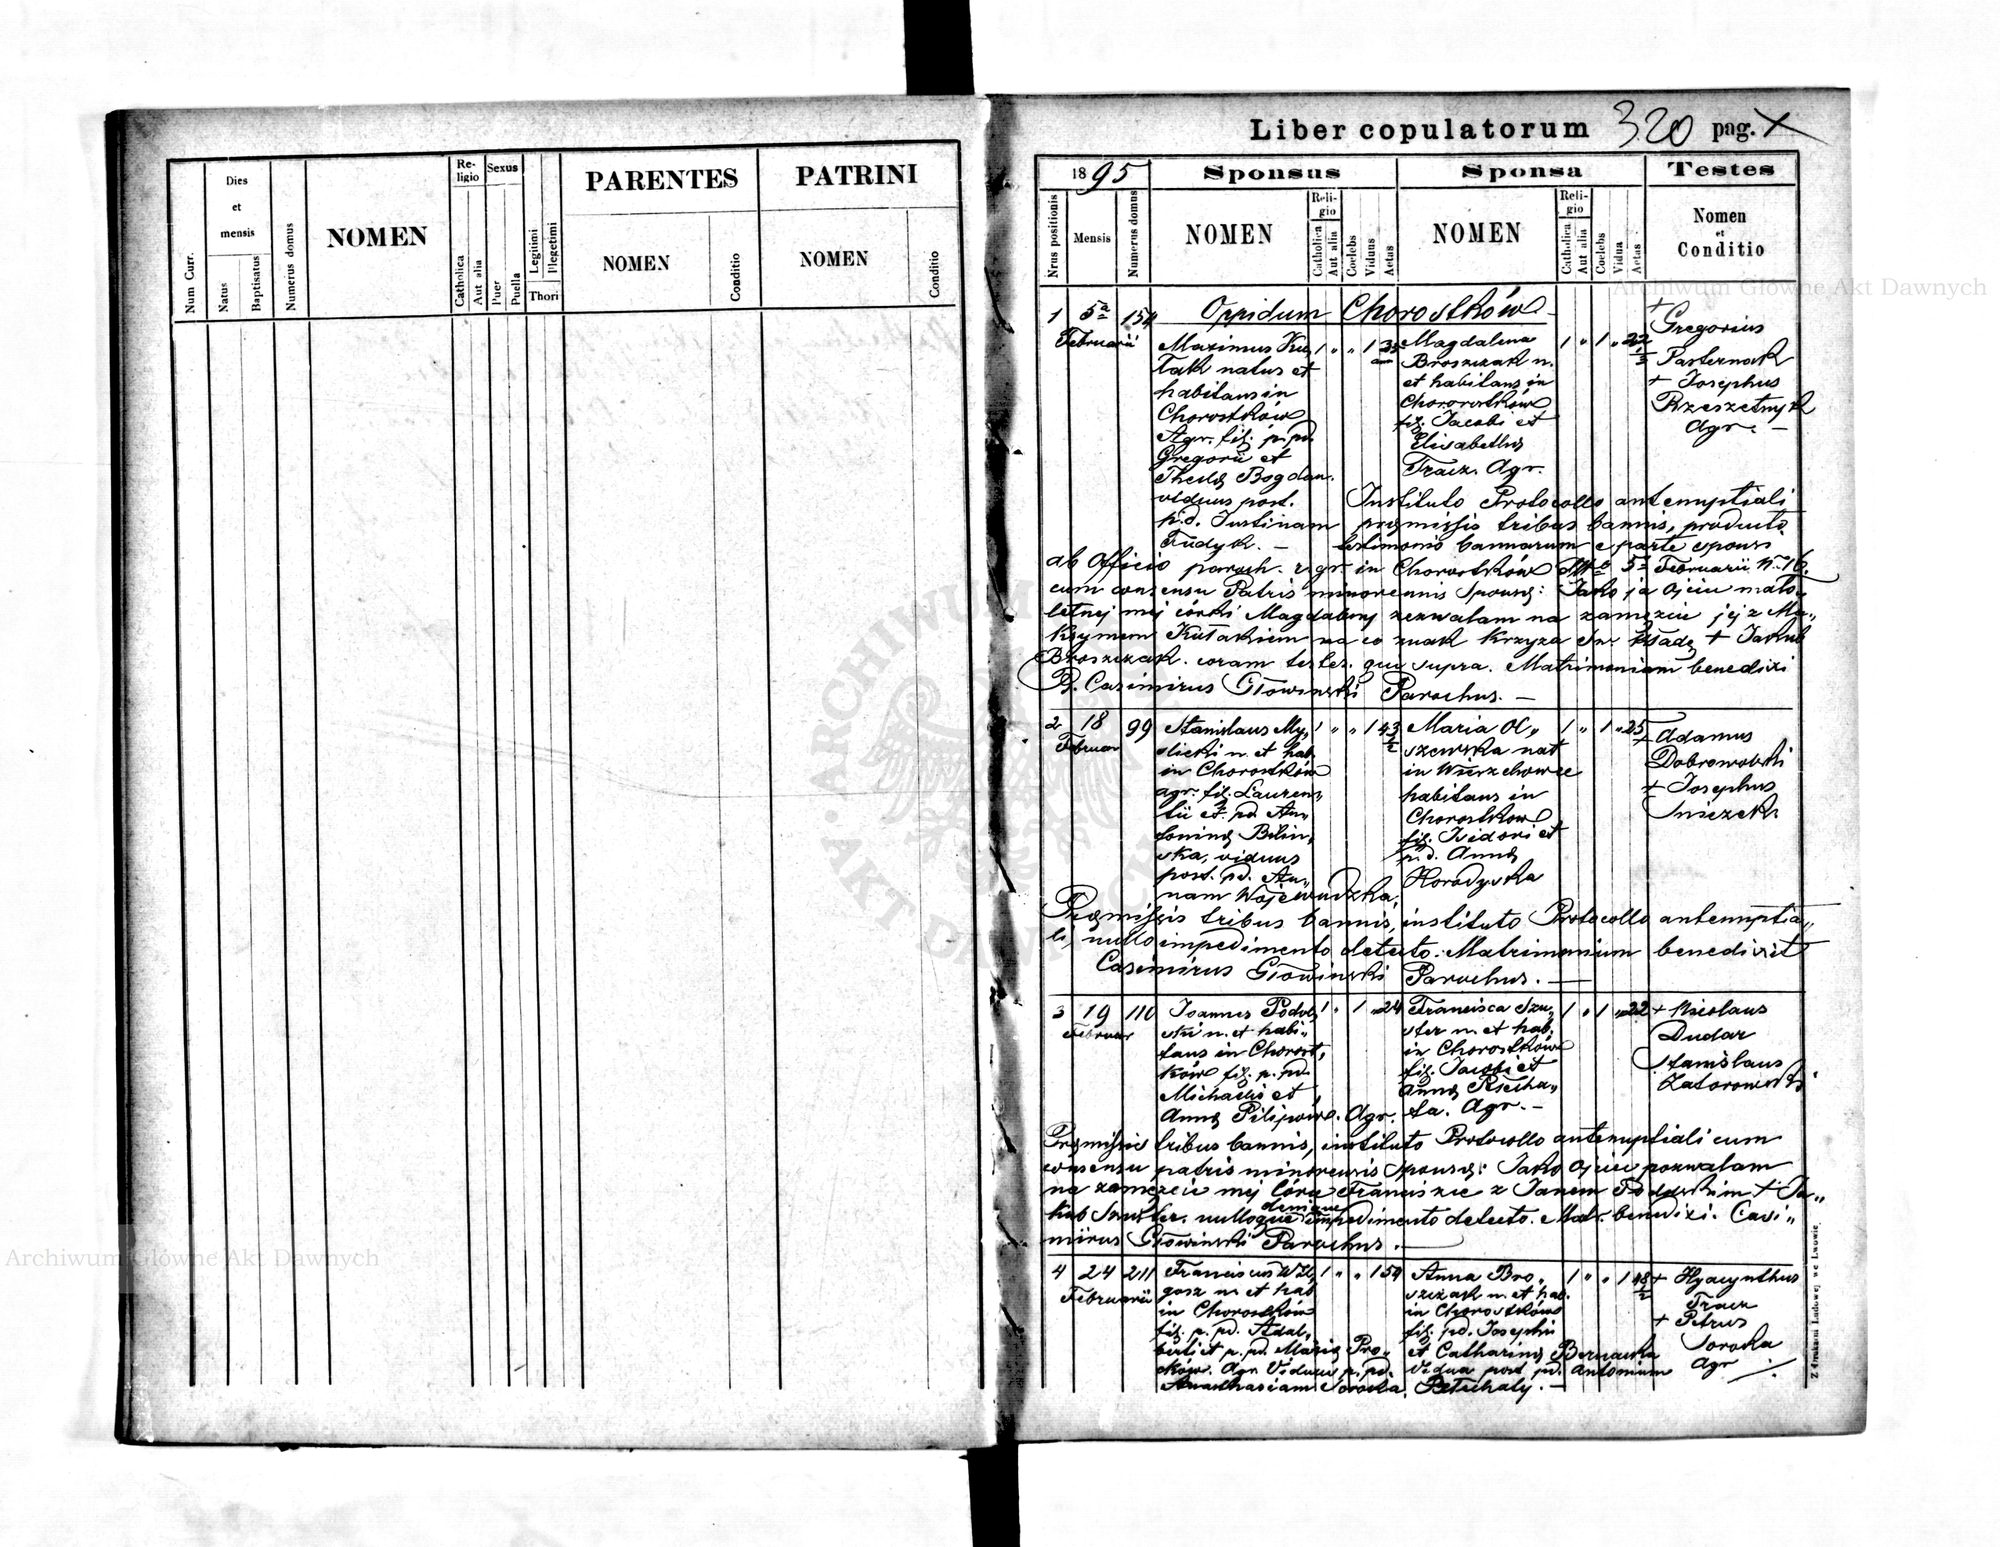 Liber copulatorum 320 pag.
Num Curr.
Dies
et
mensis
Natus
Baptisatus
Numerus domus
NOMEN
Re-
ligio
Catholica
Aut alia
Sexus
Puer
Puella
Legitimi
Illegetimi
Thori
PARENTES
NOMEN
Conditio
PATRINI
NOMEN
Conditio
1895
Sponsus
Sponsa
Testes
Nrus positionis
Mensis
Numerus domus
NOMEN
Reli-
gio
Catholica
Aut alia
Coelebs
Viduus
Aetas
NOMEN
Reli-
gio
Catholica
Aut alia
Coelebs
Vidua
Aetas
Nomen
et
Conditio
Oppidum Chorostków
1 5 154
Februarii
Maximus Ku
tak natus et
habitans in
Chorostków
Agr. fil. p. pd.
Gregorii et
Theclę Bogdan.
viduus post.
p.d. Justinam
Fudyk. —
1 " " 1 35
Magdalena
Broszczak n.
et habitans in
Chorostków
fil. Jacobi et
Elisabethę
Tracz. Agr.
1 " 1 " 22
+
Gregorius
Pasternak
+ Josephus
Rzeszetnyk
Agr. —
Instituto Protocollo antenuptiali
pręmissis tribus bannis, producto
testimonio bannorum e parte sponsi
ab Officio paroch. r. gr. in Chorostków 5 Februarii N. 16.
cum consensu Patris minorennis Sponsę: Jako ja ojciec mało-
letniej mej córki Magdaleny zezwalam na zamęzcie jej z Ma„
ksymem Kułakiem na co znak krzyza św. kładę + Jakub
Broszczak. coram testes. qui supra. Matrimonium benedixi
P. Casimirus Głowinski Parochus. —
2 18 99
Februar
Stanislaus My„
slicki n. et hab.
in Chorostków
agr. fil. Lauren„
tii et pd. An„
toninę Bilin„
ska, viduus
post. pd. An„
nam Wojewudzka.
1 " " 1 43
Maria Ol„
szewska nat
in Wierzchowce
habitans in
Chorostkow
fil. Isidori et
p.d. Annę
Horodyska
1 " 1 " 25
+ Adamus
Dobrowolski
+ Josephus
Sniezek.
Pręmissis tribus bannis, instituto Protocollo antenuptia„
li, nullo impedimento detecto. Matrimonium benedixit
Casimirus Głowinski Parochus. —
3 19 110
Februar
Joannes Podol„
ski n. et habi„
tans in Chorost„
ków fil. p. pd.
Michaelis et
Annę Pilipów. Agr.
1 " 1 " 24
Francisca Szu„
ster n. et hab.
in Chorostków
fil. Jacobi et
Annę Piecha„
ta. Agr. —
1 " 1 " 22
+ Nicolaus
Dudar
Stanislaus
Zatorowski
Pręmissis tribus bannis, instituto Protocollo antenuptiali cum
consensu patris minorennis sponsę: Jako ojciec pozwalam
na zamęzcie mej Córce Franciszce z Janem Podolskim + Ja„
kub Szuster. nulloque denique impedimento detecto. Matr. benedixi. Casi„
mirus Głowinski Parochus. —
4 24 211
Februarii
Franciscus
gosz n. et hab
in Chorostków
fil. p. pd. Adal„
berti et p. pd. Marię Pro„
ków. Agr. Viduus p. pd.
Anasthasiam Soroka.
1 " " 1 54
Anna Bro„
szczak n. et hab.
in Chorostków
fil. pd. Josephi
et Catharinę Bernacka
Vidua post. pd. Antonium
1 " " 1 48
+ Hyacynthus
Tracz
+ Petrus
Soroka
Agr
Z drukarni Ludowej we Lwowie
Archiwum Główne Akt Dawnych
Archiwum Główne Akt Dawnych
ARCHIWUM GŁÓWNE AKT DAWNYCH